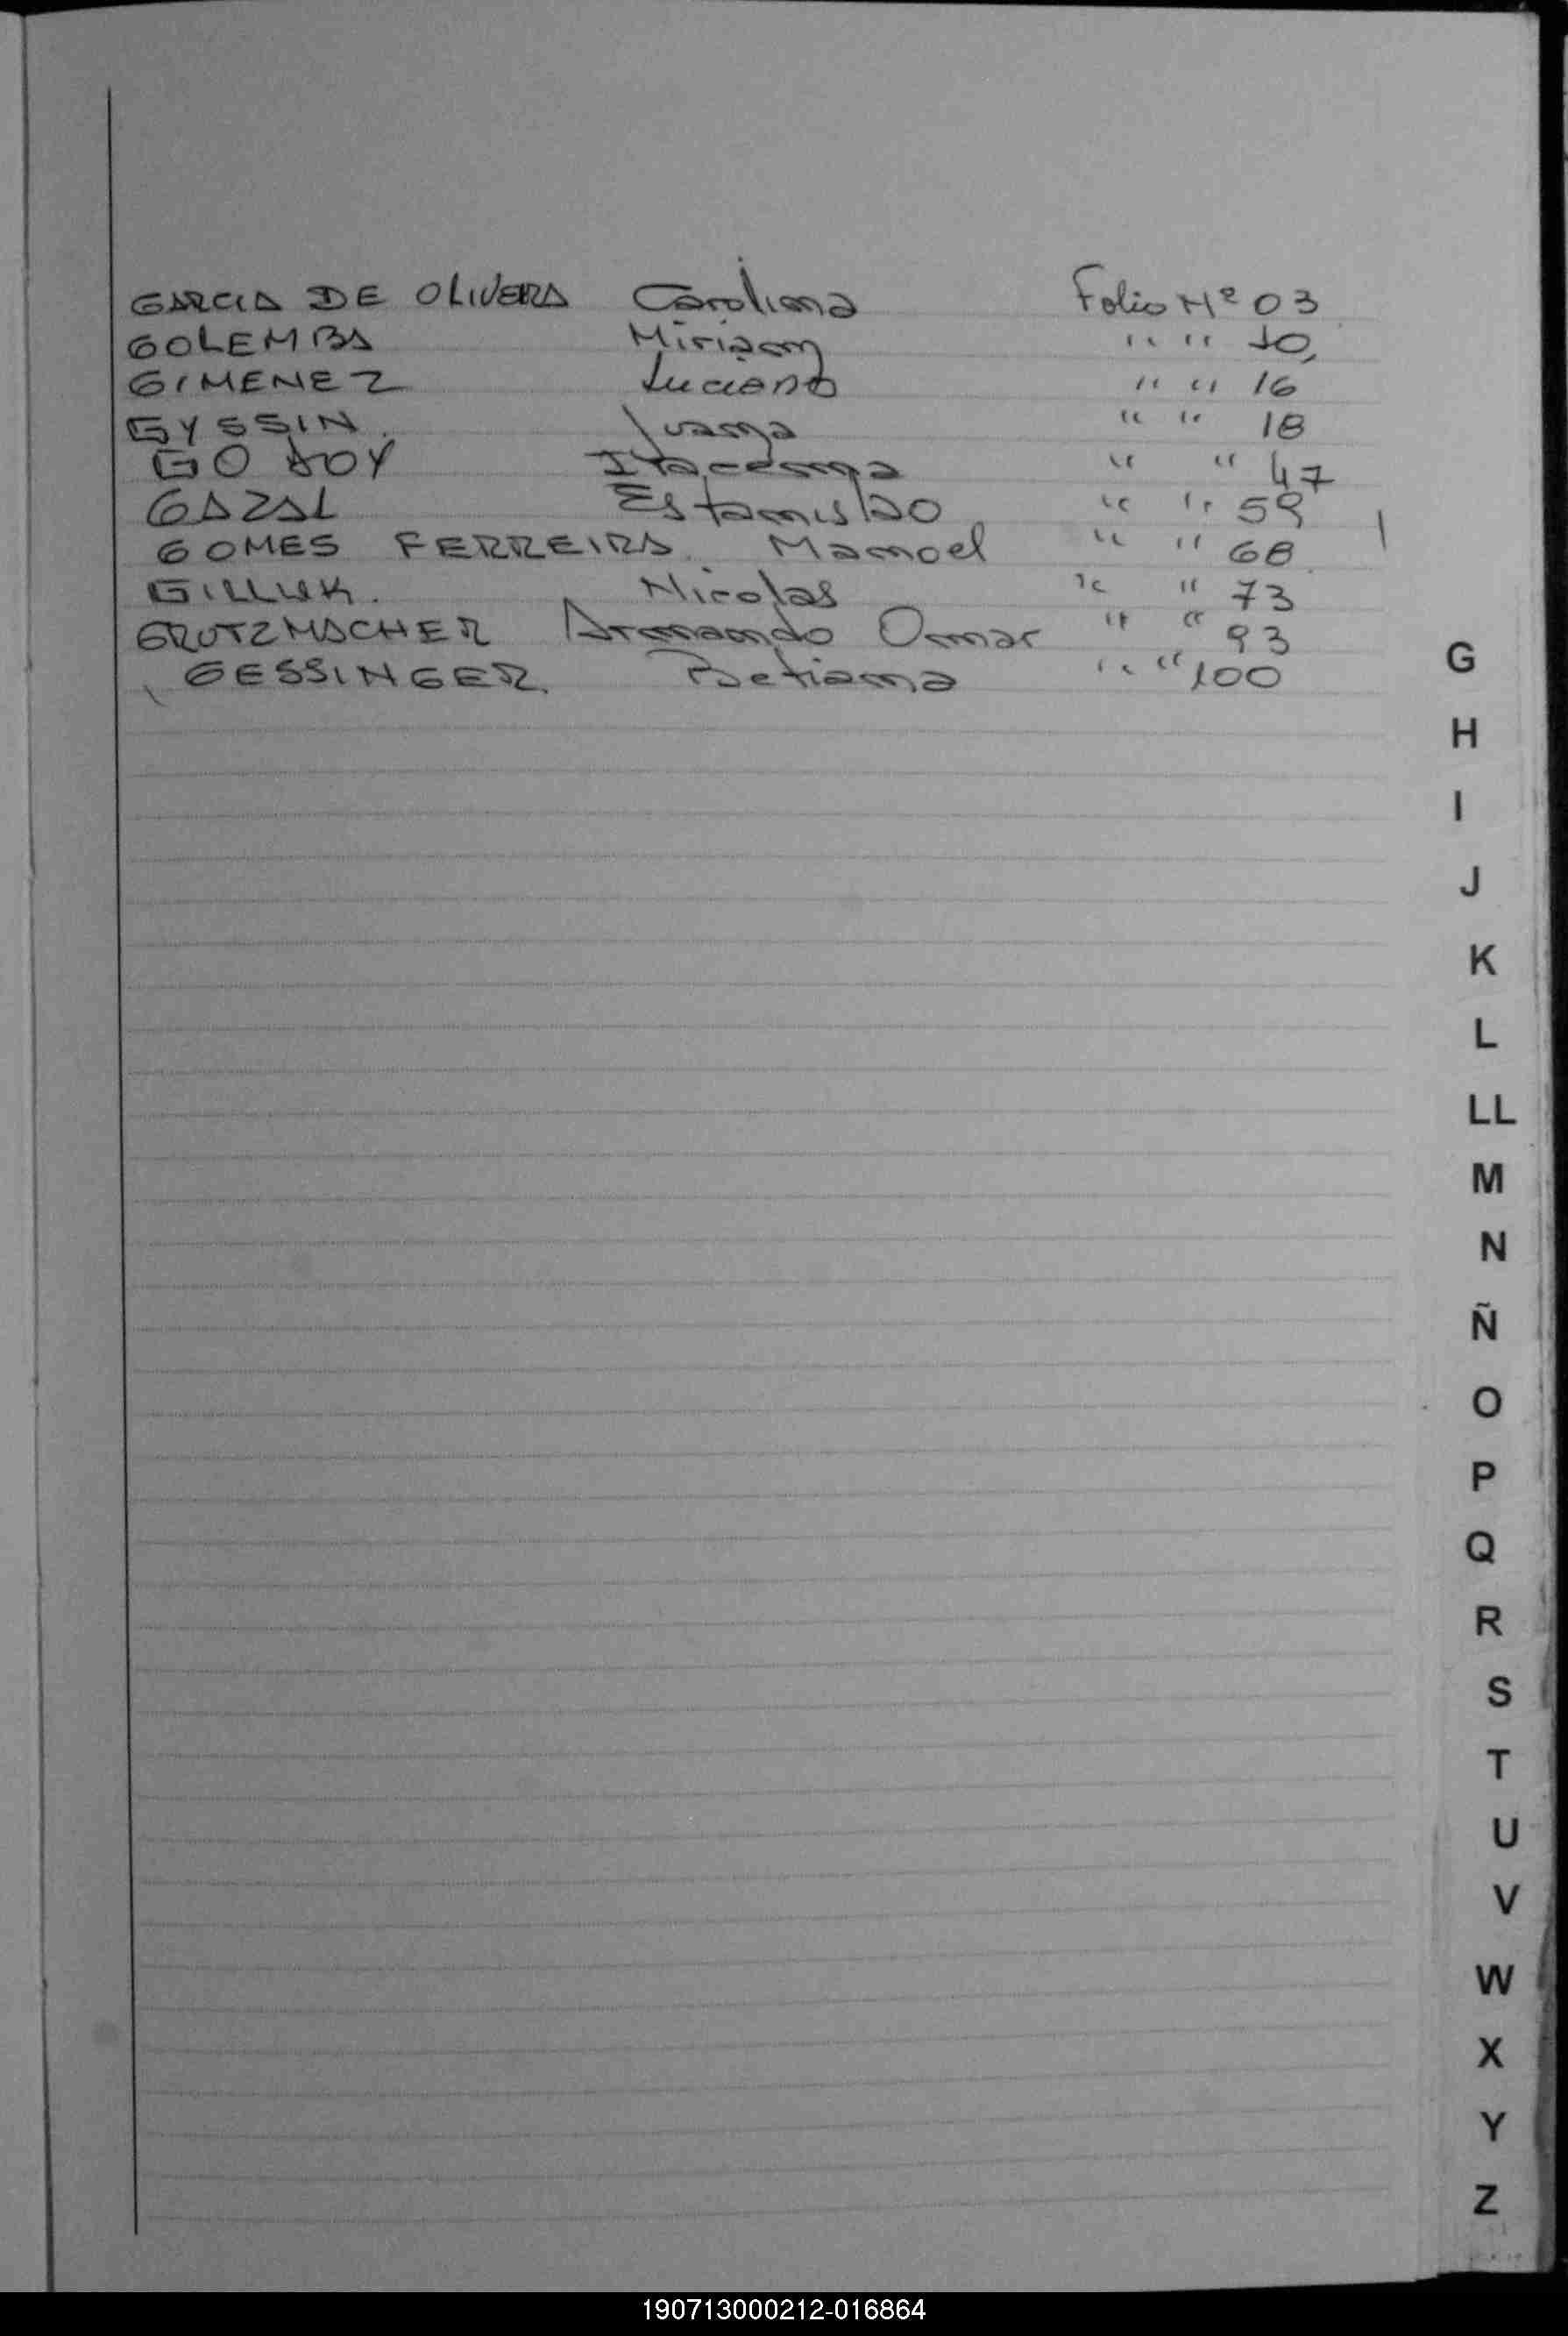 GARCIA DE OLIVERA Carolina Folio Nº 03
GOLEMBA Miriam " " 10
GIMENEZ Luciano " " 16
GYSSIN Juana " " 18
GODOY Itacema " " 47
GAZAL Estanislao " " 59
GOMES FERREIRA Manoel " " 68
GILLUK. Nicolas " " 73
GRUTZMACHER Armando Omar " " 93
GESSINGER. Betiana " " 100
G
H
I
J
K
L
LL
M
N
Ñ
O
P
Q
R
S
T
U
V
W
X
Y
Z
190713000212-016864